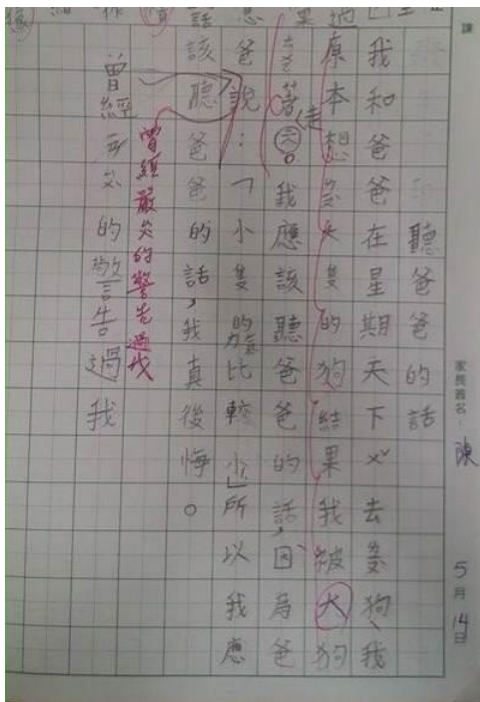 課
家長簽名：陳
5月14日
聽爸爸的話
我和爸爸在星期天下ㄨˇ去牽狗、我
原本想牽大隻的狗結果我被大狗
著走。我應該聽爸爸的話,因為爸
爸說：「小隻的力氣比較小」所以我應
該聽爸爸的話,我真後悔。
曾經嚴肅的警告過我
曾經的警告過我